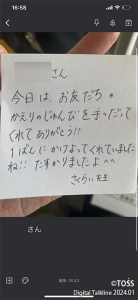 16:58
さん
今日は、お友だちの
かえりのじゅんびを手つだって
くれてありがとう!!
1ばんにかけよってくれていました
ね!! たすかりましたよ^^
さくらい先生
さん
©TOSS
Digital Talkline 2024.01